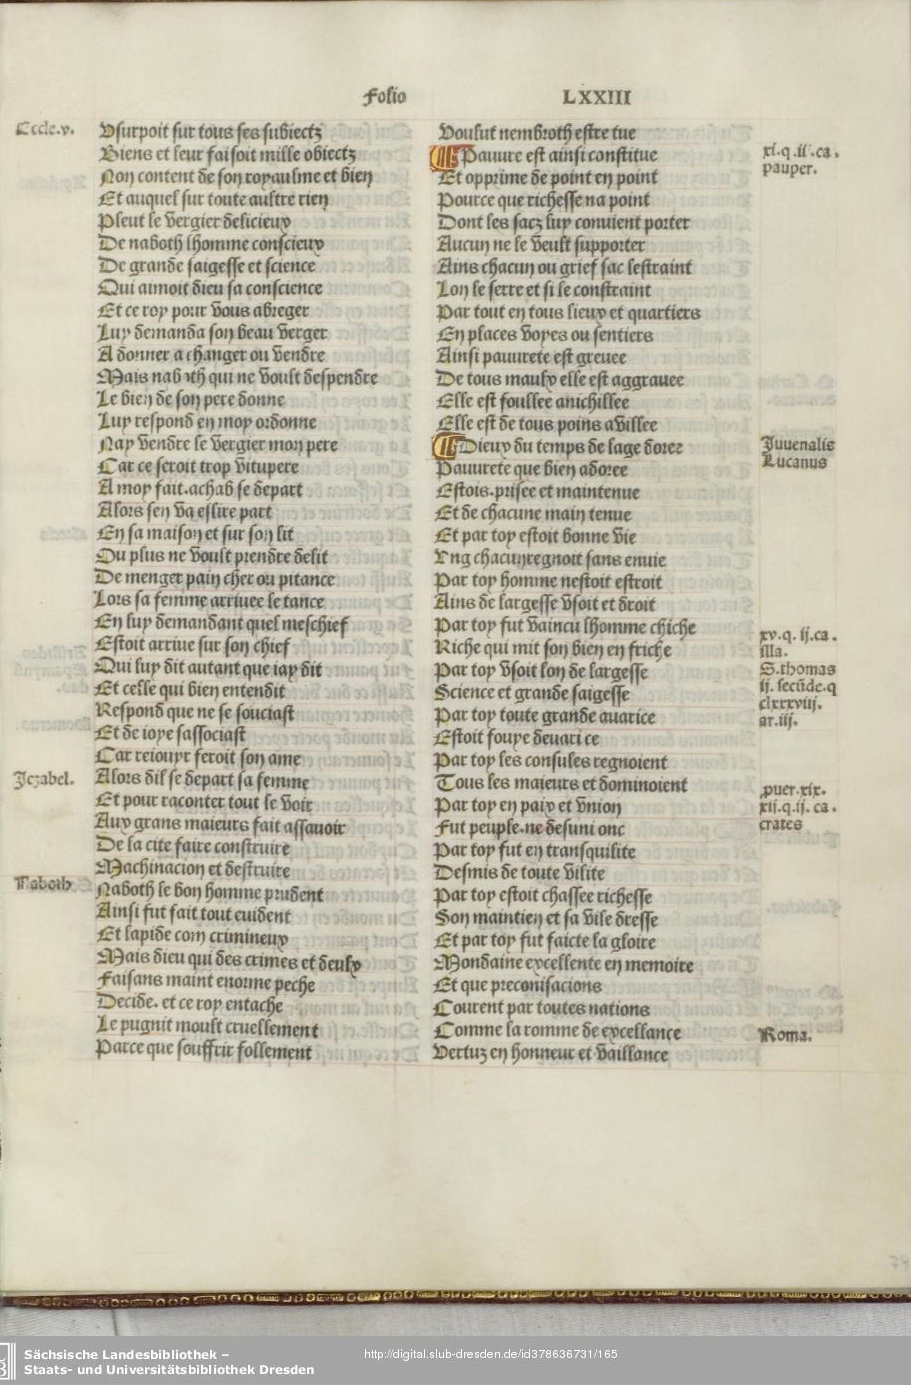 Folio LXXIII
Eccle.v.
Usurpoit sur tous ses subiectz
Biens et leur faisoit mille obiectz
Non content de son royaulme et bien
Et auquel sur toute aultre rien
Pleut le vergier delicieux
De naboth lhomme conscieux
De grande saigesse et science
Qui aimoit dieu sa conscience
Et ce roy pour vous abreger
Luy demanda son beau verger
A donner a changer ou vendre
Mais naboth qui ne voult despendre
Le bien de son pere donne
Luy respond en moy ordonne
Nay vendre le vergier mon pere
Car ce seroit trop vitupere
A moy fait.achab se depart
Alors sen va eslire part
En sa maison et sur son lit
Ou plus ne voult prendre delit
De menger pain cher ou pitance
Lors sa femme arriuee le tance
En luy demandant quel meschief
Estoit arriue sur son chief
Qui luy dit autant que iay dit
Et celle qui bien entendit
Respond que ne se souciast
Et de ioye sassociast
Car reiouyr feroit son ame
Jezabel.
Alors dil se depart sa femme
Et pour raconter tout le voir
Aux grans maieurs fait assauoir
De la cite faire construire
Machinacion et destruire
Naboth
Naboth le bon homme prudent
Ainsi fut fait tout euident
Et lapide com crimineux
Mais dieu qui des crimes et deulx
Faisans maint enorme peche
Decide. et ce roy entache
Le pugnit moult cruellement
Parce que souffrir follement
Voulut nembroth estre tue
Pauure est ainsi constitue
xi.q.ii.ca.
pauper.
Et opprime de point en point
Pource que richesse na point
Dont les sacz luy conuient porter
Aucun ne le veult supporter
Ains chacun ou grief sac lestraint
Lon le serre et si le constraint
Par tout en tous lieux et quartiers
En places voyes ou sentiers
Ainsi pauurete est greuee
De tous maulx elle est aggrauee
Elle est foullee anichillee
Elle est de tous poins avillee
Dieux du temps de lage doree
Juuenalis
Lucanus
Pauurete que bien adoree
Estois.prisee et maintenue
Et de chacune main tenue
Et par toy estoit bonne vie
Ung chacun regnoit sans enuie
Par toy homme nestoit estroit
Ains de largesse vsoit et droit
Par toy fut vaincu lhomme chiche
xv.q.ij.ca.
illa.
Riche qui mit son bien en friche
S.thomas
ij.secūde.q
clxxxviij.
ar.iij.
Par toy vsoit lon de largesse
Science et grande saigesse
Par toy toute grande auarice
Estoit fouye deuarice
Par toy les consules regnoient
Tous les maieurs et dominoient
puer.xix.
xii.q.ij.ca.
crates
Par toy en paix et vnion
Fut peuple.ne desuni onc
Par toy fut en transquilite
Desmis de toute vilite
Par toy estoit chassee richesse
Son maintien et sa vile dresse
Et par toy fut faicte la gloire
Mondaine excellente en memoire
Et que preconisacions
Courent par toutes nations
Comme la romme de excellance
Roma.
Vertuz en honneur et vaillance
Sächsische Landesbibliothek –
Staats- und Universitätsbibliothek Dresden
http://digital.slub-dresden.de/id378636731/165